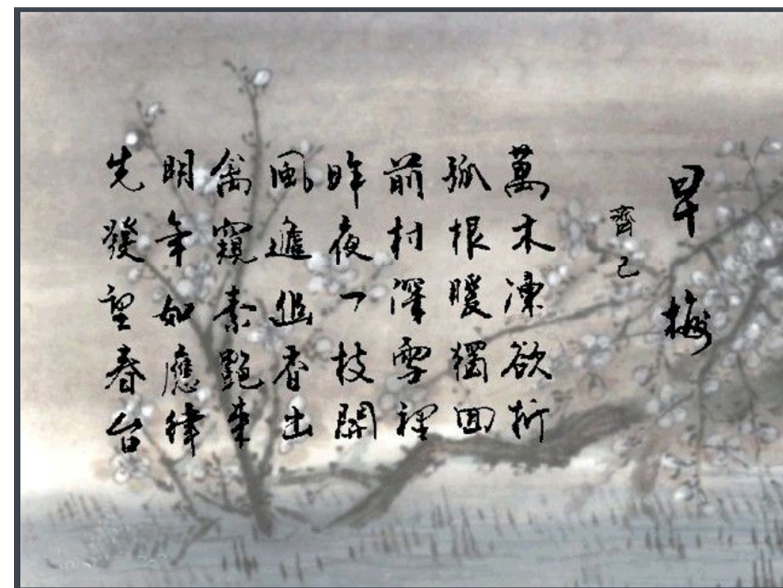 早梅
齊己
萬木凍欲折
孤根暖獨回
前村深雪裡
昨夜一枝開
風遞幽香出
禽窺素艷來
明年如應律
先發望春台